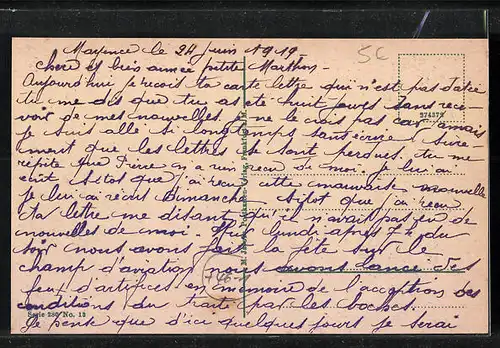 Mayence le 24 juin 1919-
5c
Chere et bien aimée petite Marthon-
Aujourd'hui je recois ta carte lettre qui n'est pas datée
tu me dis que tu as eté huit jours sans rece-
voir de mes nouvelles. Je ne le crois pas car jamais
374372
je suis allé si longtemps sans ecrire. Sure-
ment que les lettres se sont perdues. Tu me
répète que Pierre n'a rien recu de moi. Je lui ai
ecrit sitot que j'ai recu cette mauvaise nouvelle
Je lui ai récrit Dimanche sitot que j'ai recu
Ta lettre me disant qu'il n'avait pas eu de
nouvelles de moi. Hier lundi apres 7h du
soir nous avons fait la fête sur le
champ d'aviation nous avons lancé des
feux d'artifices en mémoire de l'acception des
conditions du traité par les boches.
Serie 280 No. 12
Je pense que d'ici quelques jours je serai